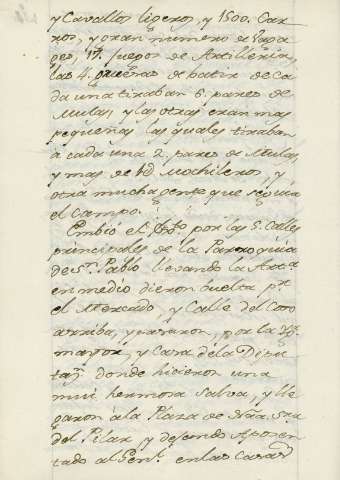 y Cavallos ligeros, y 1500. Car-
ros, y gran numero de Vaga-
ges, 17. fuegos de Artilleria,
las 4. gruesas de batir de ca-
da una tiraban 5. pares de
Mulas, y las otras eran mas
pequeñas las quales tiraban
à cada una 2. pares de Mulas,
y mas de Mochileros, y
otra mucha gente que seguia
el Campo.
Embiò el por las 5. Calles
principales de la Parroquia
de Sn. Pablo llevando la Arta.
en medio dieron buelta pr.
el Mercado, y Calle del Coso
arriba, y pararon, por la Yga.
mayor, y Casa de la Diputa-
taon. donde hicieron una
mui hermosa Salva, y lle-
garon à la Plaza de Nra. Sra.
del Pilar, y dejando Aposen-
tado al Genl. en las Casas